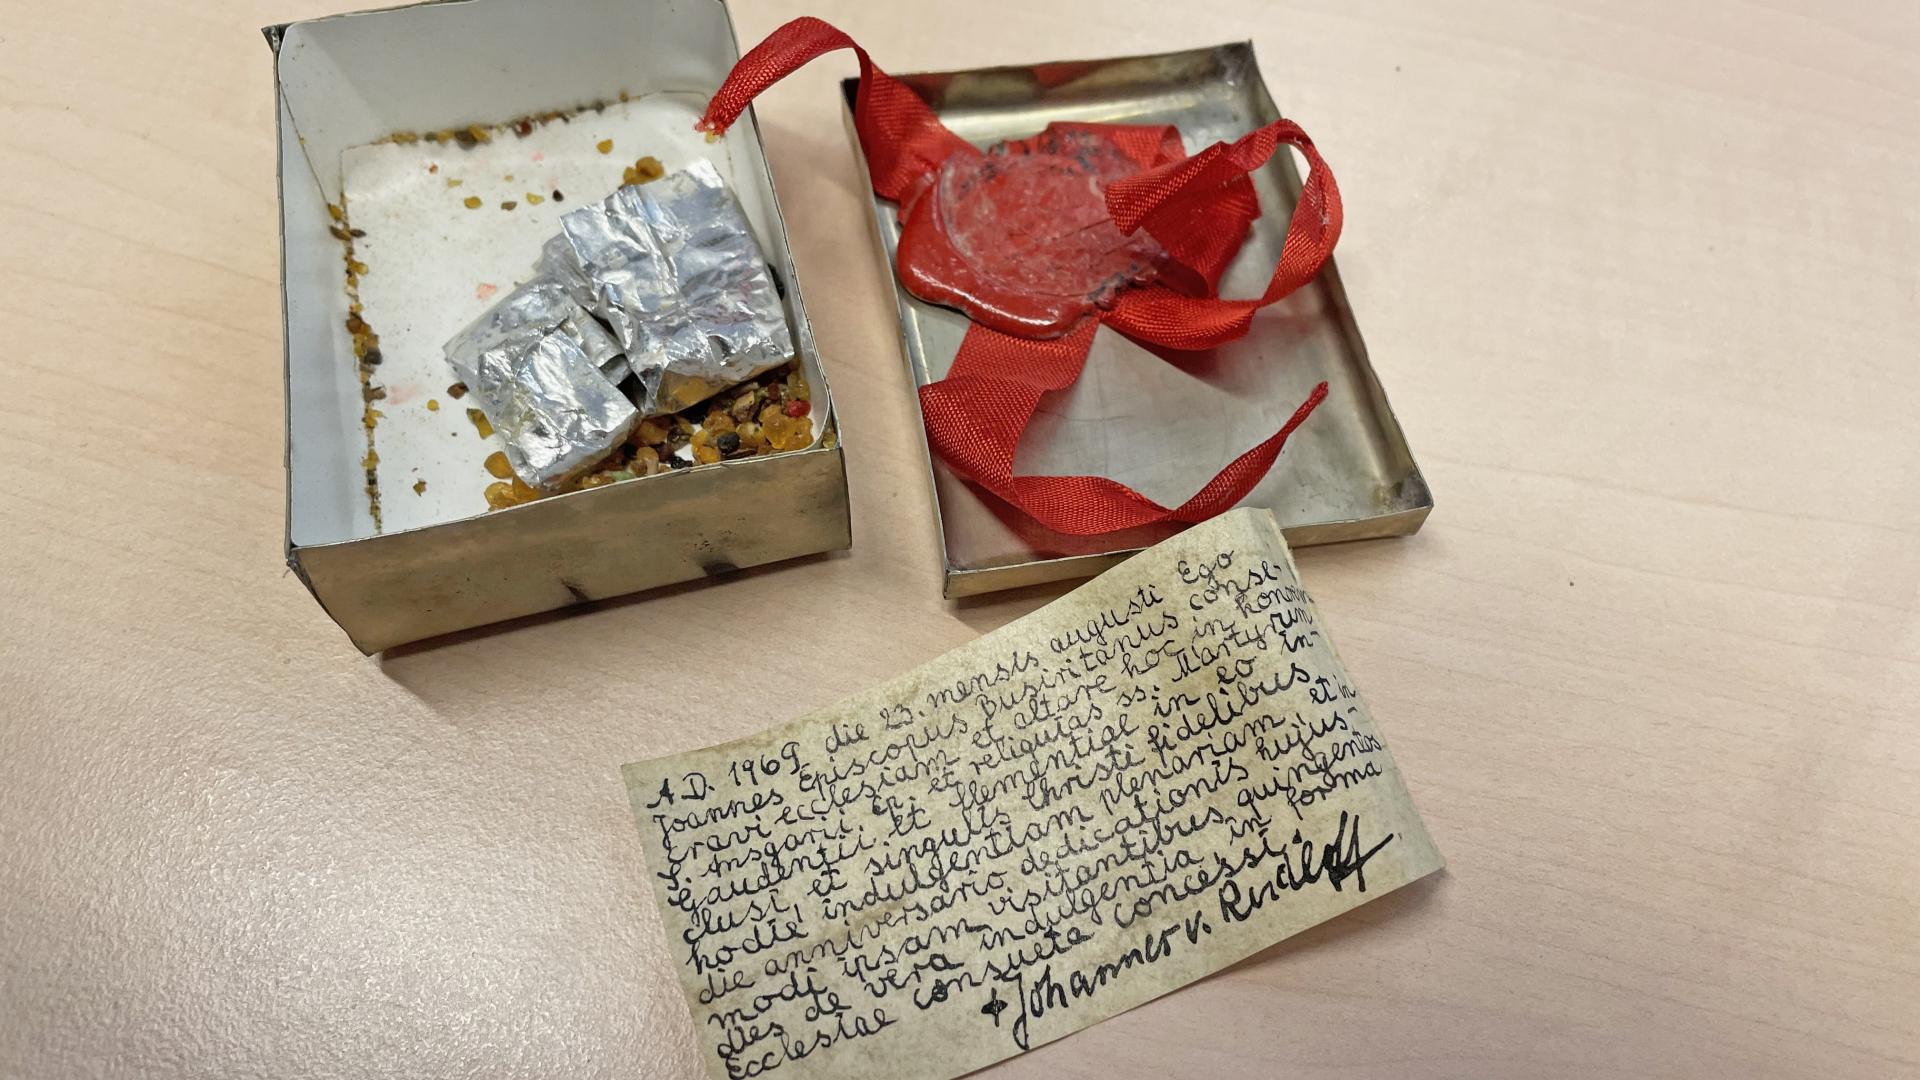 A.D. 1969 die 23. mensis augusti Ego
Joannes Episcopus Busiritanus conse-
cravi ecclesiam et altare hoc in honorem
S. Ansgarii, Ep. et reliquias ss. Martyrum
Gaudentii et Clementiae in eo in-
clusi, et singulis Christi fidelibus
hodie indulgentiam plenariam et in
die anniversario dedicationis hujus-
modi ipsam visitantibus quingentos
dies de vera indulgentia in forma
Ecclesiae consueta concessi.
+ Johannes v. Rudloff